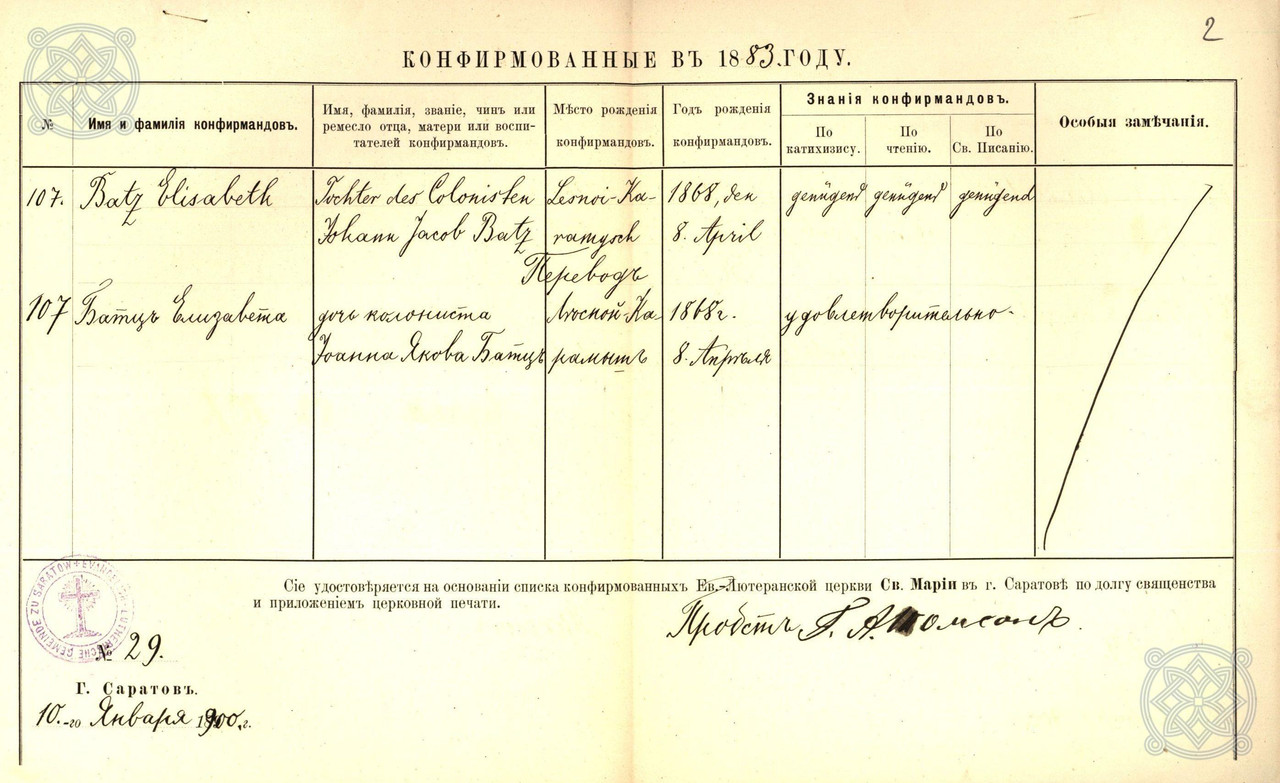 2
КОНФИРМОВАННЫЕ ВЪ 1883.ГОДУ.
№
Имя и фамилія конфирмандовъ.
Имя, фамилія, званіе, чинъ или
ремесло отца, матери или воспи-
тателей конфирмандовъ.
Мѣсто рожденія
конфирмандовъ.
Годъ рожденія
конфирмандовъ.
Знанія конфирмандовъ.
По
катихизису.
По
чтенію.
По
Св. Писанію.
Особыя замѣчанія.
107. Batz Elisabeth Tochter des Colonisten Lesnoi-Ka- 1868, den genügend genügend genügend
Johann Jacob Batz ramysch 8. April
Переводъ
107 Батцъ Елизавета дочь колониста Лѣсной-Ка- 1868г. удовлетворительно-
Іоанна Якова Батцъ рамышъ 8. Апрѣля
Сіе удостовѣряется на основаніи списка конфирмованныхъ Ев.-Лютеранской церкви Св. Маріи въ г. Саратовѣ по долгу священства
и приложеніемъ церковной печати.
Пробстъ Г. А. Томсонъ.
EVANGELISCH-LUTHERISCHE GEMEINDE ZU SARATOW
№ 29.
Г. Саратовъ.
10.-го Января 1900.г.